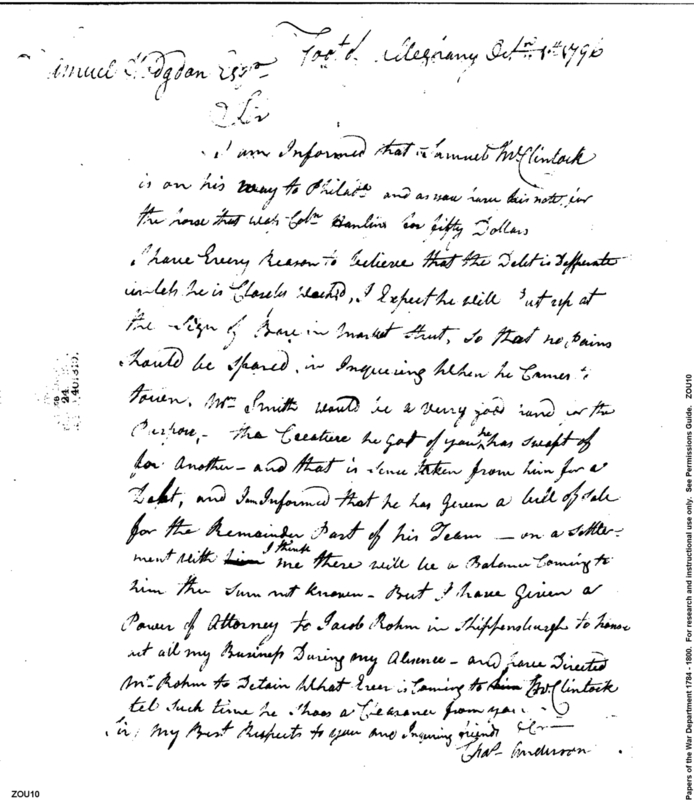 Foot of Allegrany Octr 1st 1796
Samuel Hodgdon Esqr
Sir
I am Informed that Samuel McClintock
is on his way to Philada and as you have his note for
the horse that was Colo for fifty Dollars
I have Every Reason to believe that the Debt is Desperate
unless he is Closely watched, I Expect he will Put up at
the Sign of Bare in Market Street, so that no pains
should be spared in Inquereing When he Comes to
touen. Mr Smith would be a very good hand for the
Purpose,- the Creature he got of you he has swapt of
for Another - and that is since taken from him for a
Debt, and I am Informed that he has given a bill of sale
for the Remainder Part of his Team - on a settle-
ment with I think me there will be a Balance Coming to
him the sum not known - But I have Given a
Power of Attorney to Jacob Rohm in Shippensburgh to
act all my Business During my Absence - and have Directed
Mr Rohm to Detain What Ever is Coming to McClintock
tel such time he shoes a Clearance from you.
Sir, My Best Respects to you and Inquiring friends &c
Chas Anderson
ZOU10
Papers of the War Department 1784 - 1800. For research and instructional use only. See Permissions Guide. ZOU10